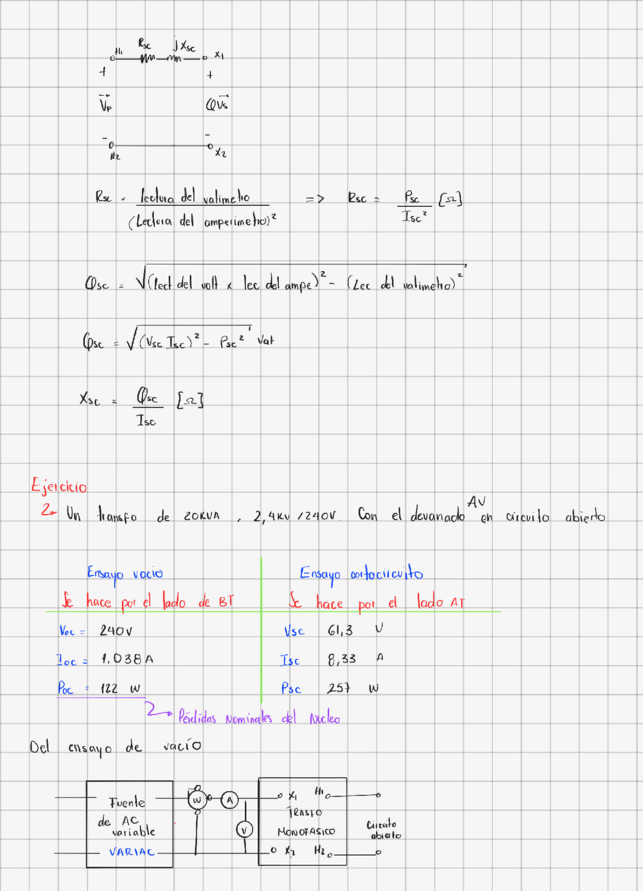 Rsc jXsc
H1 X1
+ +
Vp QVs
- -
H2 X2
Rsc = lectura del vatimetro / (Lectura del amperimetro)² => Rsc = Psc / Isc² [Ω]
Qsc = √(lect del volt x lec del ampe)² - (Lec del vatimetro)²
Qsc = √(Vsc Isc)² - Psc² Var
Xsc = Qsc / Isc [Ω]
Ejercicio
2- Un transfo de 20KVA, 2,4KV/240V. Con el devanado AV en circuito abierto
Ensayo vacio
Se hace por el lado de BT
Voc = 240V
Ioc = 1.038 A
Poc = 122 W
Pérdidas Nominales del Nucleo
Ensayo cortocircuito
Se hace por el lado AT
Vsc 61,3 V
Isc 8,33 A
Psc 257 W
Del ensayo de vacío
Fuente
de AC
variable
VARIAC
W A
V
X1 H1
TRASFO
MONOFASICO
X2 H2
Circuito
abierto